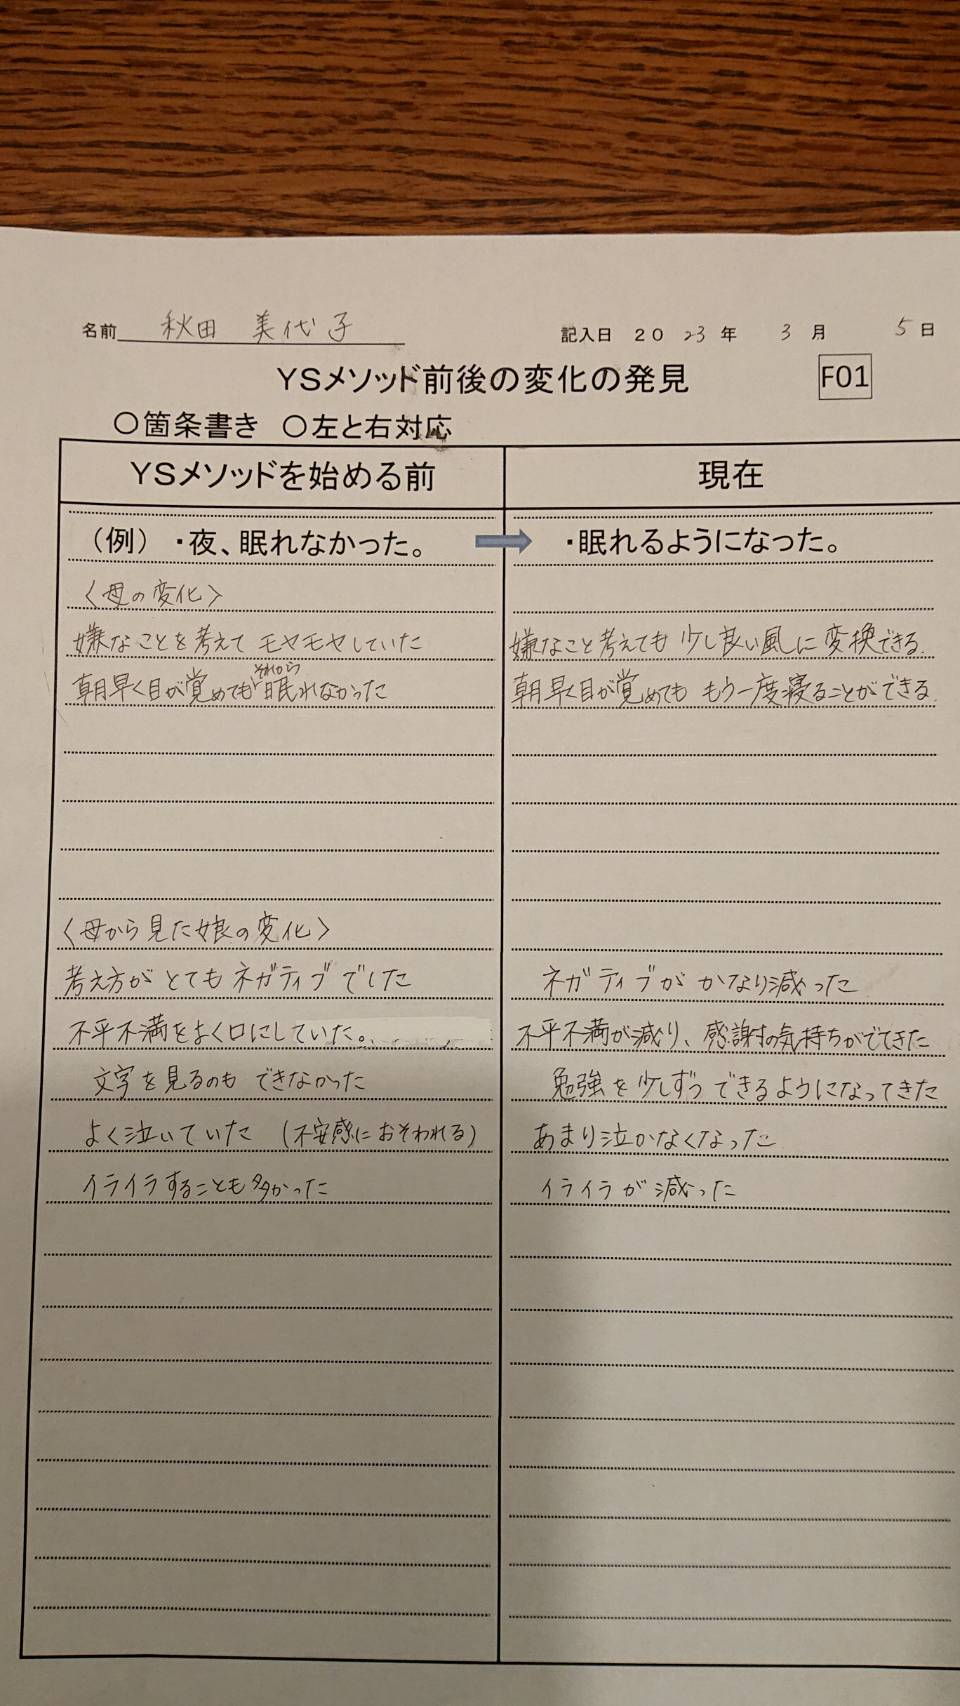 名前 秋田 美代子 記入日 2023年 3月 5日
YSメソッド前後の変化の発見 F01
○箇条書き ○左と右対応
YSメソッドを始める前 現在
(例) ・夜、眠れなかった。 ・眠れるようになった。
〈母の変化〉
嫌なことを考えて モヤモヤしていた 嫌なこと考えても 少し良い風に変換できる。
それから
朝早く目が覚めても眠れなかった 朝早く目が覚めても もう一度寝ることができる。
〈母から見た娘の変化〉
考え方が とても ネガティブ でした ネガティブが かなり減った
不平不満をよく口にしていた。 不平不満が減り、感謝する気持ちがでてきた
文字を見るのも できなかった 勉強を少しずつ できるようになってきた
よく泣いていた (不安感におそわれる) あまり泣かなくなった
イライラすることも多かった イライラが減った